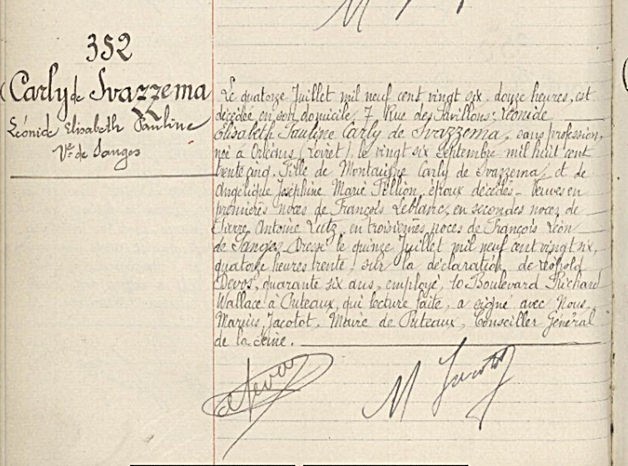 352
Carly de Svazzema
Léonide Elisabeth Pauline
Ve de Sanges
Le quatorze Juillet mil neuf cent vingt six, douze heures, est
décédée en son domicile, 7 Rue des Pavillons: Léonide
Elisabeth Pauline Carly de Svazzema, sans profession,
née à Orléans (Loiret), le vingt six Septembre mil huit cent
trente cinq. Fille de Montaigne Carly de Svazzema, et de
Angélique Joséphine Marie Pillion, époux décédés - Veuve en
premières noces de François Leblanc, en secondes noces de
Pierre Antoine Lutz, en troisièmes noces de François Léon
de Sanges. Dressé le quinze Juillet mil neuf cent vingt six,
quatorze heures trente, sur la déclaration de Léopold
Devos, quarante six ans, employé, 10 Boulevard Richard
Wallace à Puteaux, qui lecture faite, a signé avec Nous,
Marius Jacotot, Maire de Puteaux, Conseiller Général
de la Seine.
M Jacotot